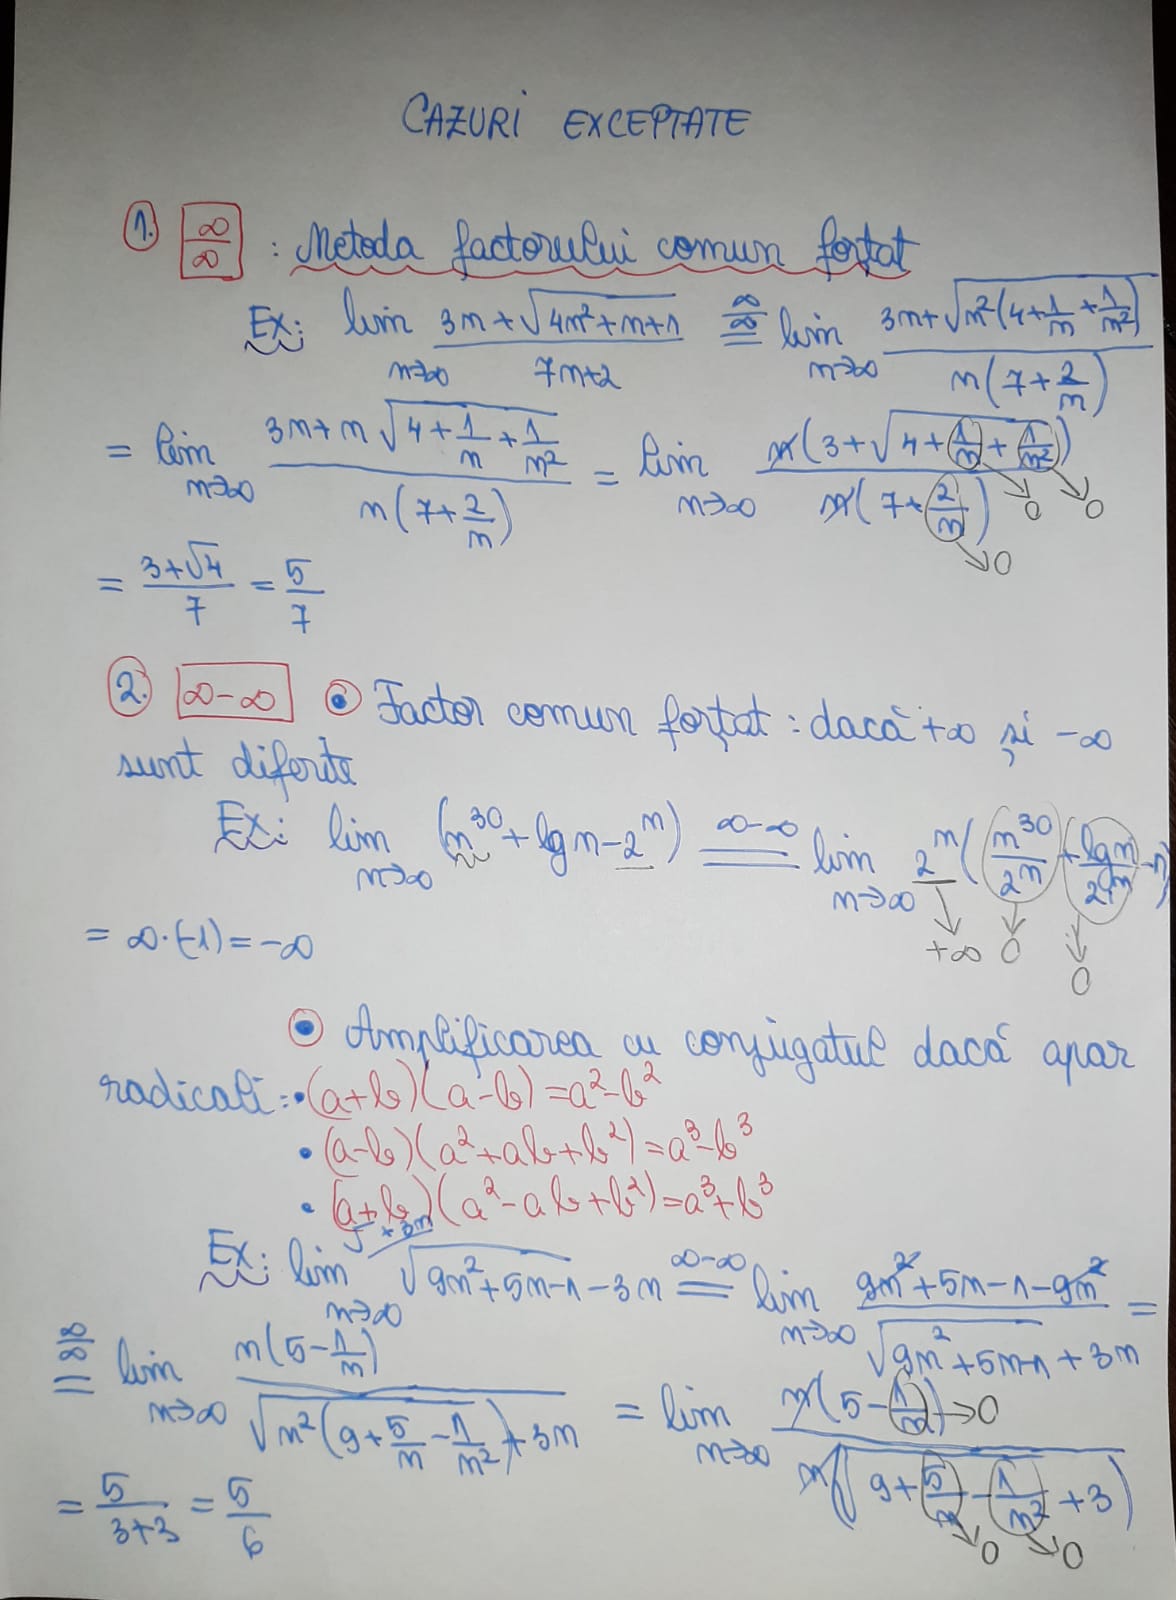 CAZURI EXCEPTATE
1. ∞/∞ : Metoda factorului comun forțat
Ex: lim n→∞ (3n+√(4n²+n+1))/(7n+2) =(∞/∞) lim n→∞ (3n+√(n²(4+1/n+1/n²)))/(n(7+2/n))
= lim n→∞ (3n+n√(4+1/n+1/n²))/(n(7+2/n)) = lim n→∞ (n(3+√(4+1/n+1/n²)))/(n(7+2/n)) →0 →0 →0
= (3+√4)/7 = 5/7
2. ∞-∞ • Factor comun forțat : dacă +∞ și -∞
sunt diferite
Ex: lim n→∞ (n³⁰+lg n-2ⁿ) =(∞-∞) lim n→∞ 2ⁿ(n³⁰/2ⁿ+lg n/2ⁿ-1) →+∞ →0 →0
= ∞·(-1)=-∞
• Amplificarea cu conjugatul dacă apar
radicali: •(a+b)(a-b)=a²-b²
• (a-b)(a²+ab+b²)=a³-b³
• (a+b)(a²-ab+b²)=a³+b³
√+3n
Ex: lim n→∞ √(9n²+5n-1)-3n =(∞-∞) lim n→∞ (9n²+5n-1-9n²)/(√(9n²+5n-1)+3n) =
=(∞/∞) lim n→∞ (n(5-1/n))/(√(n²(9+5/n-1/n²))+3n) = lim n→∞ (n(5-1/n))/(n(√(9+5/n-1/n²)+3)) →0 →0 →0
= 5/(3+3) = 5/6